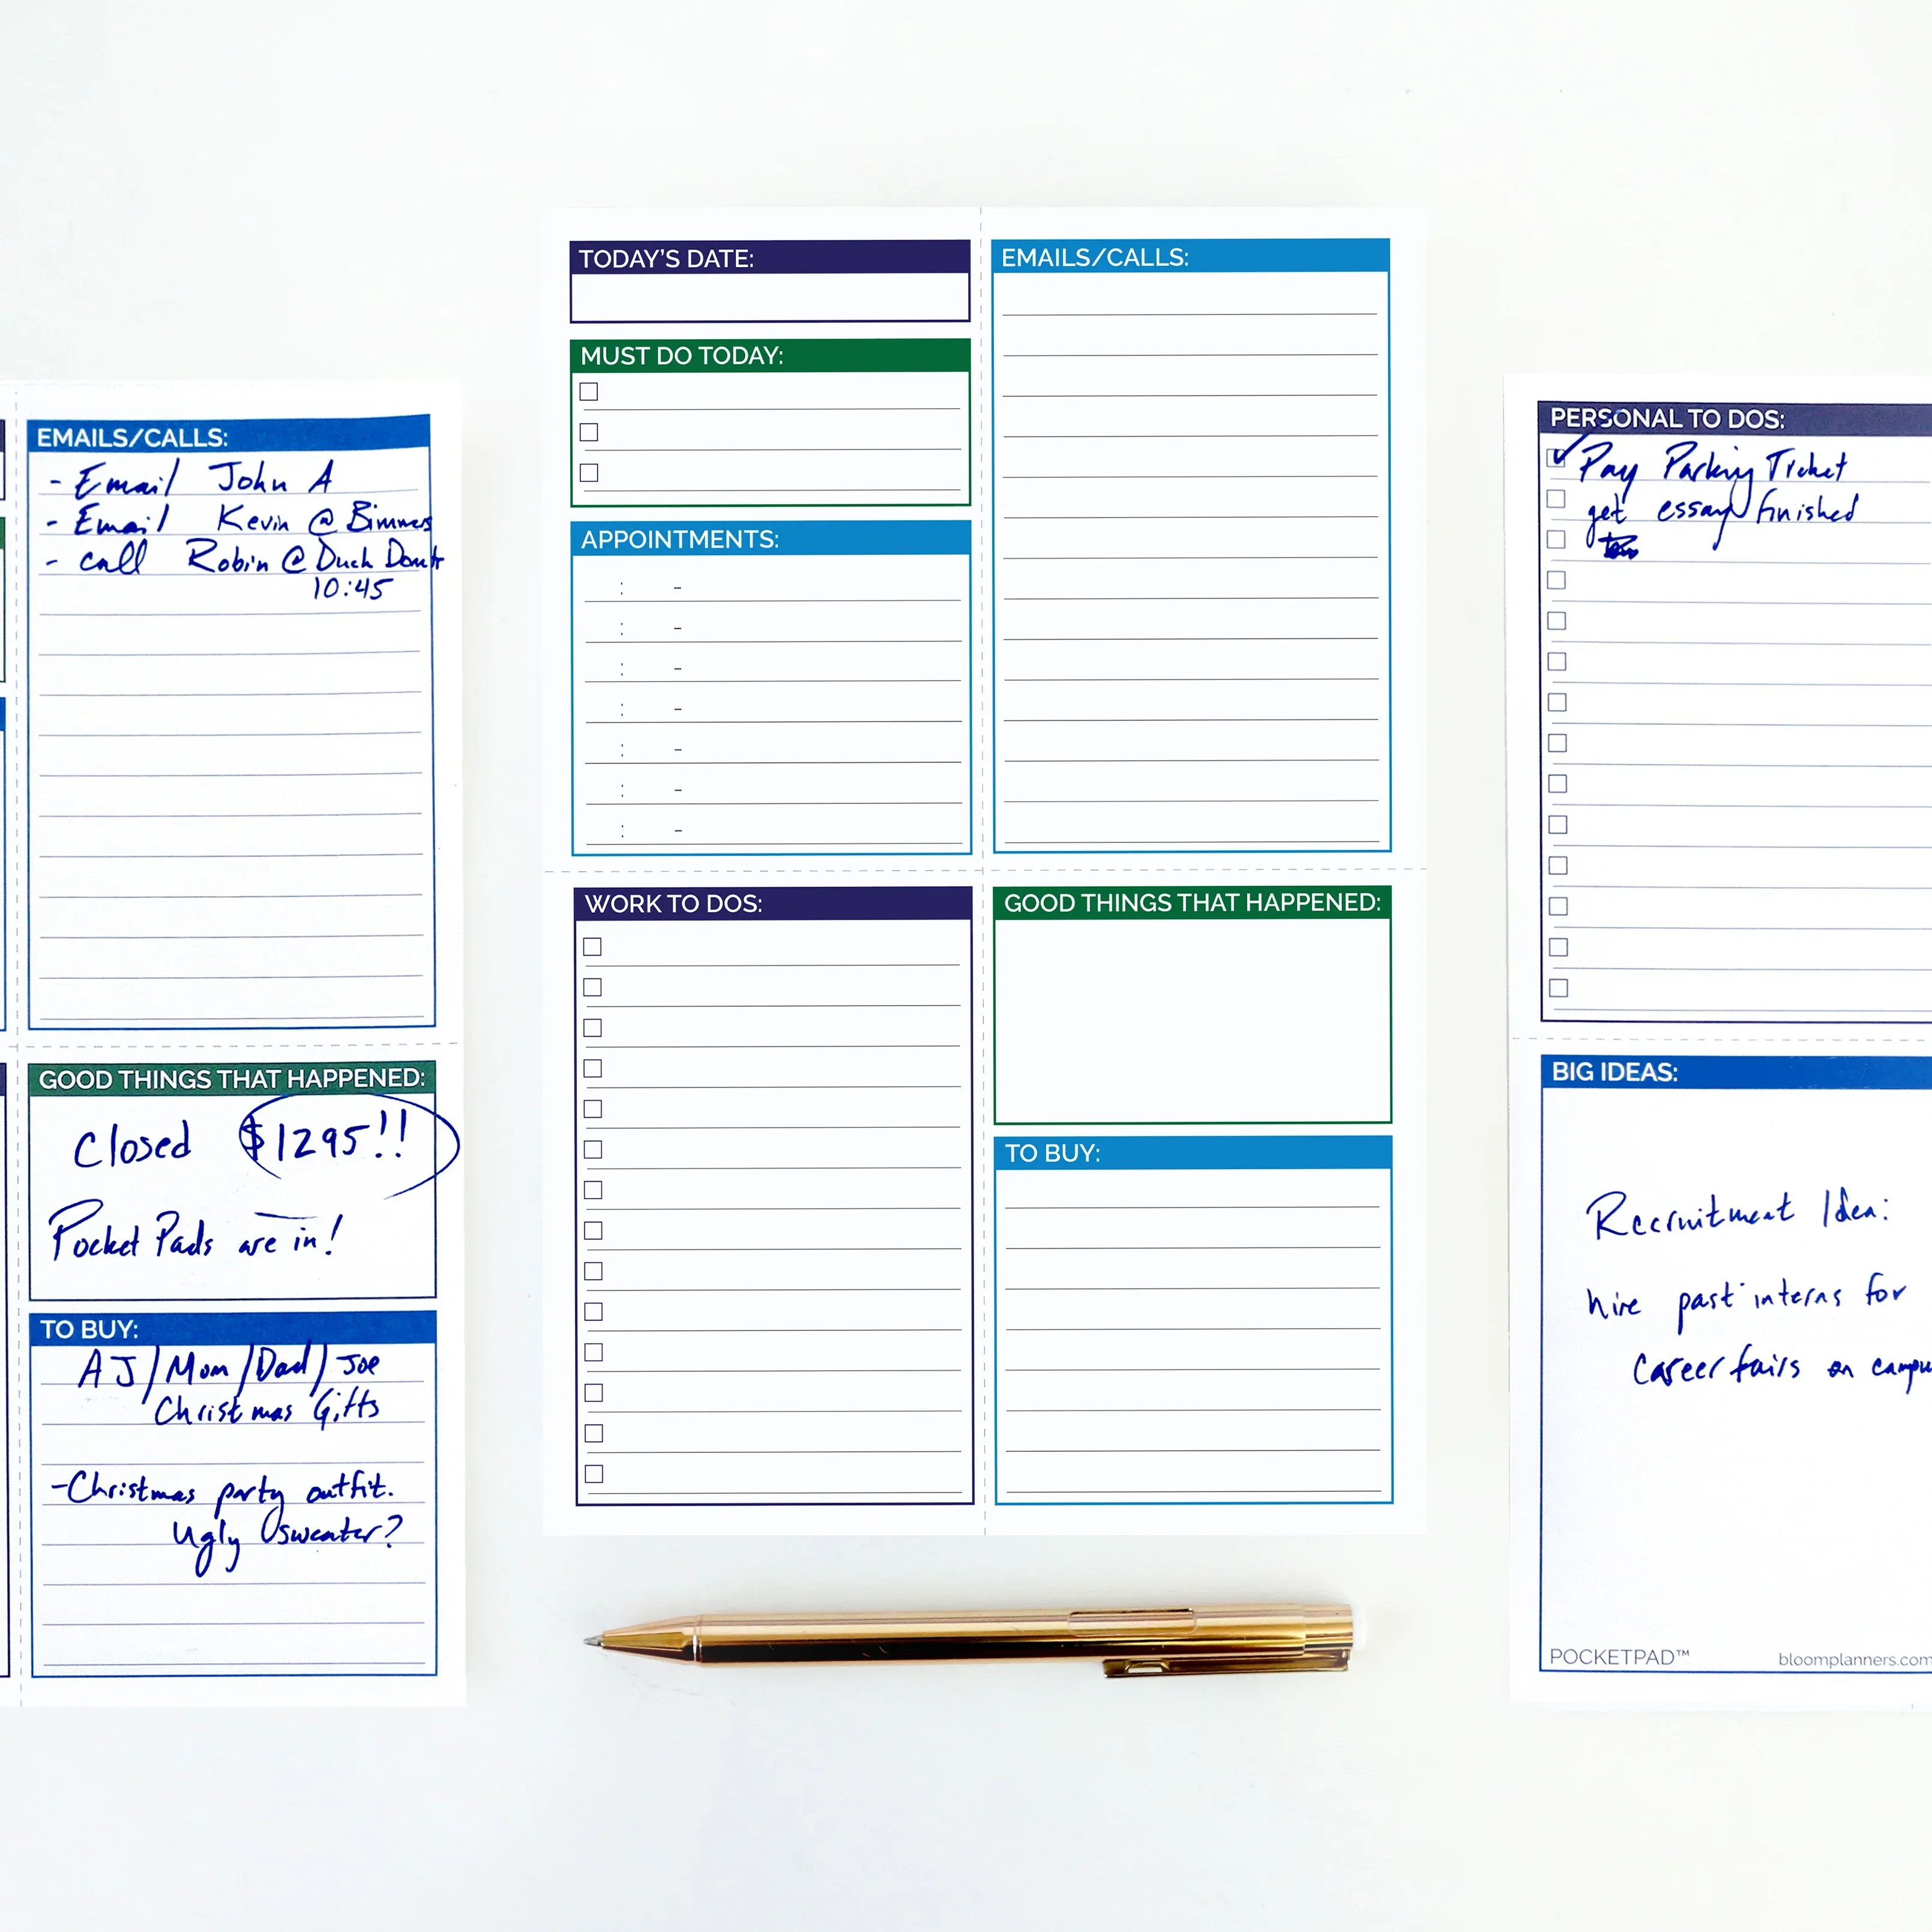 EMAILS/CALLS:
- Email John A
- Email Kevin @ Bimmers
- call Robin @ Duck Donut
10:45
GOOD THINGS THAT HAPPENED:
Closed $1295!!
Pocket Pads are in!
TO BUY:
AJ/Mom/Dad/Joe
Christmas Gifts
-Christmas party outfit.
Ugly sweater?
TODAY'S DATE:
MUST DO TODAY:
APPOINTMENTS:
: -
: -
: -
: -
: -
: -
: -
EMAILS/CALLS:
WORK TO DOS:
GOOD THINGS THAT HAPPENED:
TO BUY:
PERSONAL TO DOS:
Pay Parking Ticket
get essay finished
BIG IDEAS:
Recruitment Idea:
hire past interns for
Career fairs on campu
POCKETPAD™ bloomplanners.com